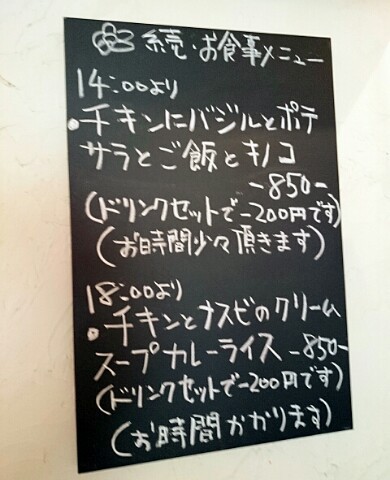 続・お食事メニュー
14:00より
・チキンにバジルとポテ
サラとご飯とキノコ
-850-
(ドリンクセットで-200円です)
(お時間少々頂きます)
18:00より
・チキンとナスビのクリーム
スープカレーライス -850-
(ドリンクセットで-200円です)
(お時間かかります)